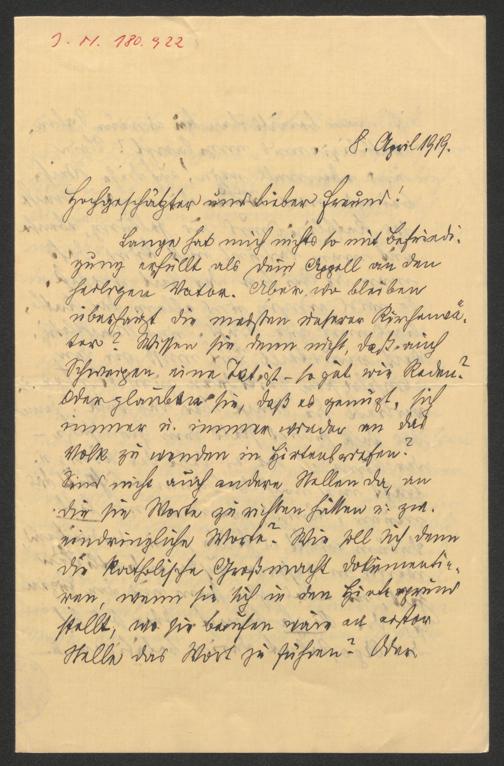 J. N. 180.922
8. April 1919.
Hochgeschätzter und lieber Freund!
Lange hat mich nichts so mit Befriedi-
gung erfüllt als dein Appell an den
heiligen Vater. Aber wo bleiben
überhaupt die meisten unserer Kirchenvä-
ter? Wissen sie denn nicht, daß auch
Schweigen eine Tat ist – so gut wie Reden?
Oder glauben sie, daß es genügt, sich
immer u. immer wieder an das
Volk zu wenden in Hirtenbriefen?
Sind nicht auch andere Stellen da, an
die sie Worte zu richten hätten u. zw.
eindringliche Worte? Wie soll sich denn
die katholische Großmacht dokumentie-
ren, wenn sie sich in den Hintergrund
stellt, wo sie berufen wäre an erster
Stelle das Wort zu führen? Oder